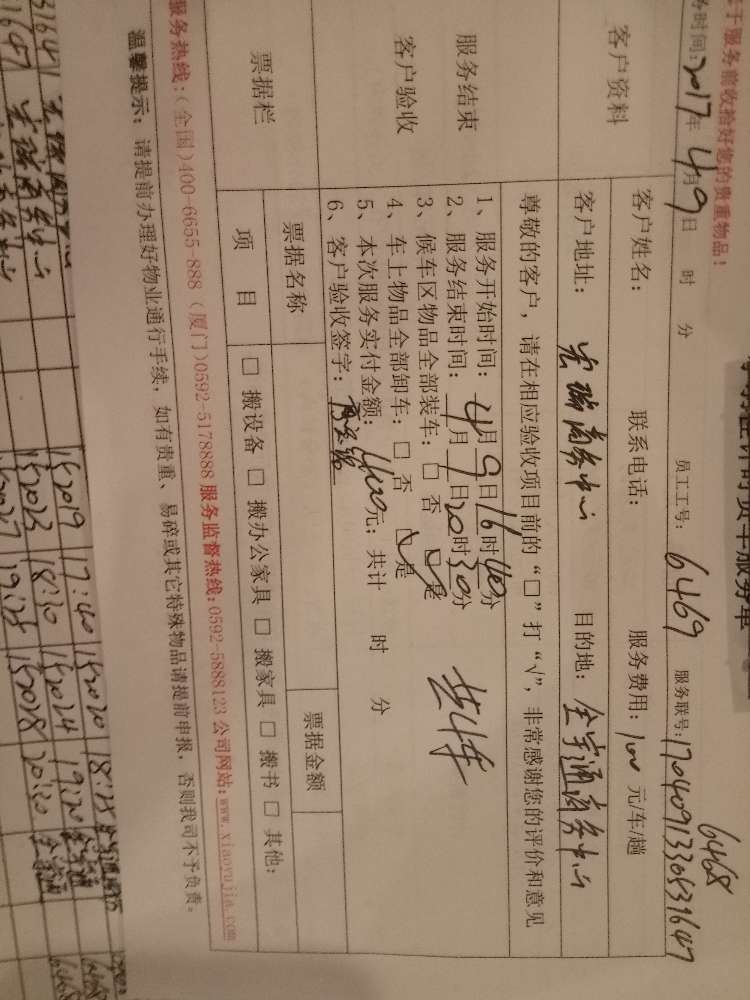 于服务前收拾好您的贵重物品!
务时间:2017年4月9日 时 分 员工工号: 6469 服务联号:17040913305831647
6468
客户资料
客户姓名: 联系电话: 服务费用: 100 元/车/趟
客户地址: 宏瑞商务中心 目的地: 全宇通商务中心
服务结束
客户验收
尊敬的客户,请在相应验收项目前的“□”打“√”,非常感谢您的评价和意见
1、服务开始时间: 4月9日16时40分
2、服务结束时间: 4月9日20时30分
3、候车区物品全部装车:□否 □是
4、车上物品全部卸车:□否 □是
5、本次服务实付金额: 400元;共计 时 分
6、客户验收签字:
共4车
票据栏
票据名称 票据金额
项 目 □ 搬设备 □ 搬办公家具 □ 搬家具 □ 搬书 □ 其他:
服务热线:(全国)400-6655-888 (厦门)0592-5178888 服务监督热线:0592-5888123 公司网站:www.xiaoyujia.com
温馨提示:请提前办理好物业通行手续,如有贵重、易碎或其它特殊物品请提前申报,否则我司不予负责。
31647 152019 17:40 152020 18:25 6468
31647 宏瑞商务中心 152023 18:20 152024 19:20 全宇通 6468
152027 19:25 152028 20:20 全宇通